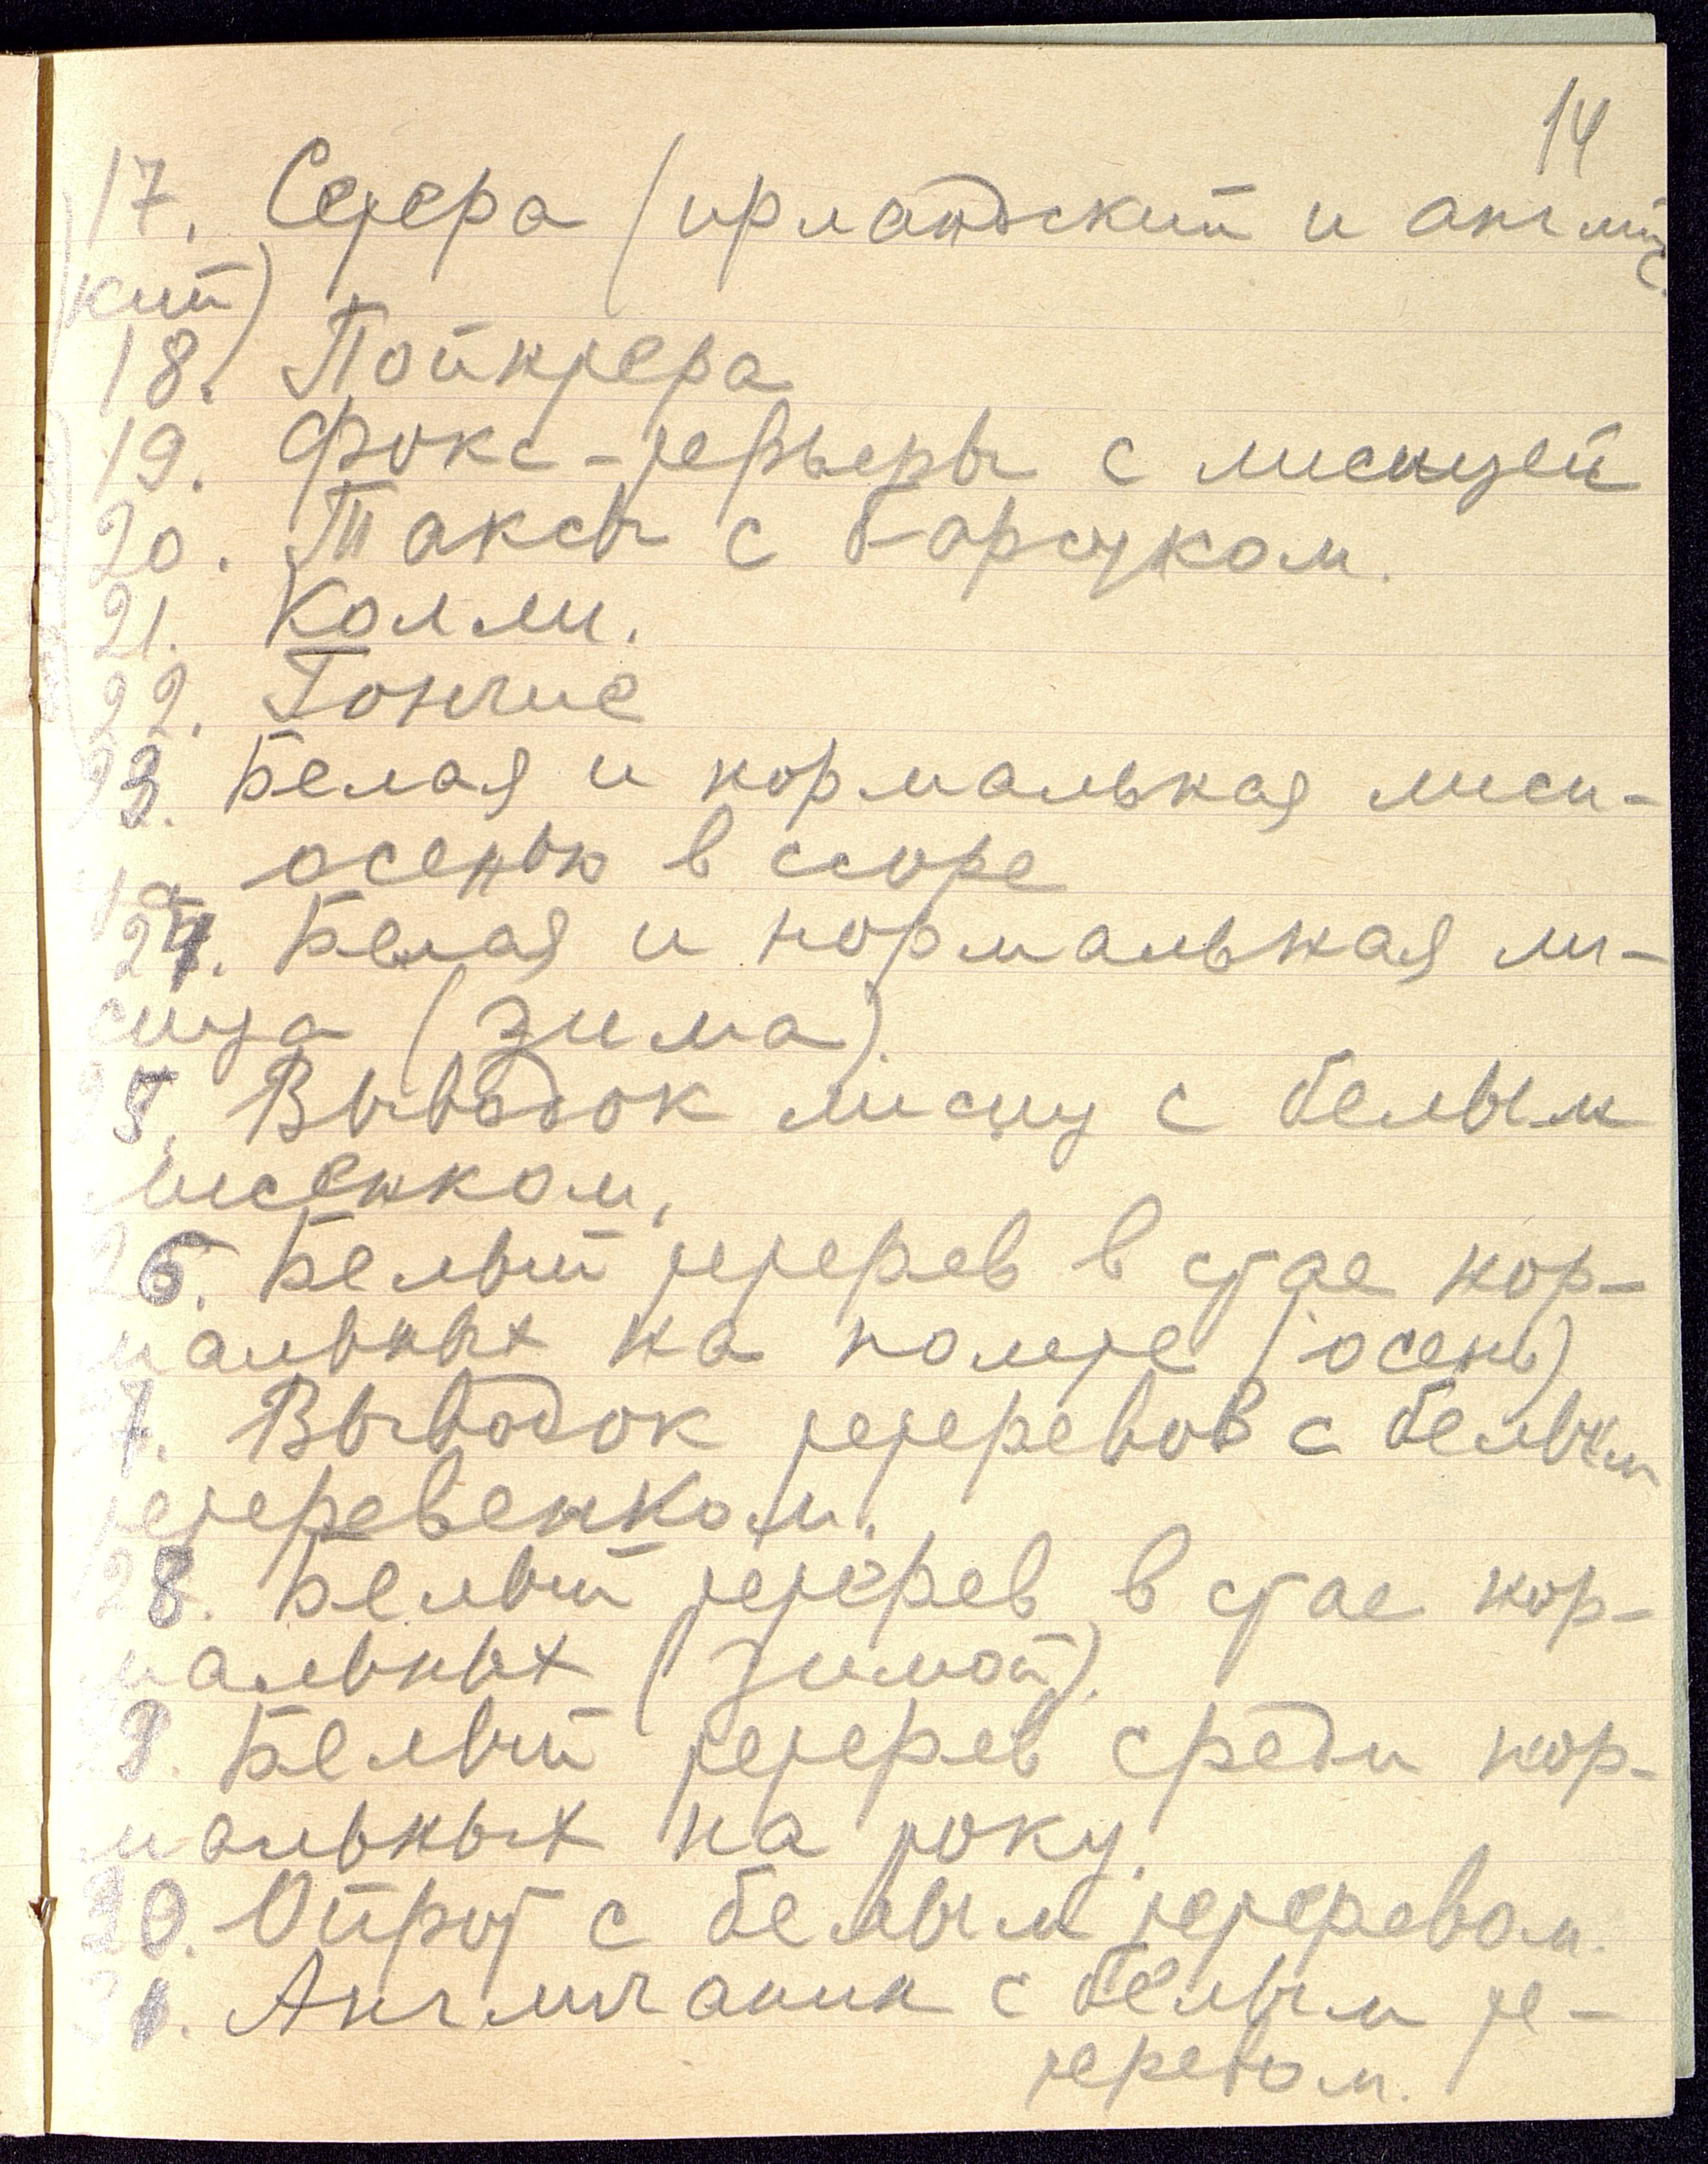 14
17. Сетера (ирландский и английс
кий)
18. Пойнтера
19. Фокс-терьеры с лисицей
20. Таксы с барсуком.
21. Колли.
22. Гончие
23. Белая и нормальная лиси-
осенью в
24. Белая и нормальная ли-
сица (зима).
25. Выводок лисиц с белым
лисенком.
26. Белый тетерев в стае нор-
мальных на полете (осень)
7. Выводок тетеревов с белым
тетеревенком.
28. Белый тетерев в стае нор-
мальных (зимой).
9. Белый тетерев среди нор-
мальных на току.
30. Ойрот с белым тетеревом.
31. Англичанин с белым те-
теревом.